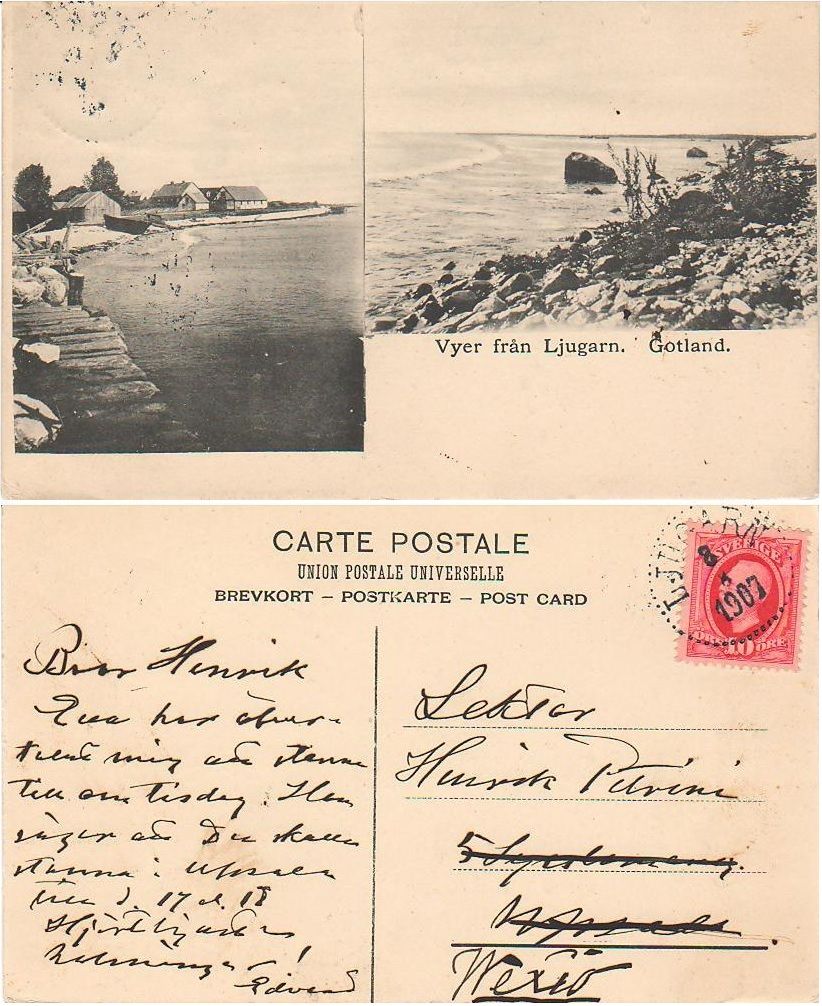 Vyer från Ljugarn. Gotland.
CARTE POSTALE
UNION POSTALE UNIVERSELLE
BREVKORT – POSTKARTE – POST CARD
LJUGARN
8
1907
SVERIGE
10 ÖRE
Bror Henrik
Eva har öfver-
talat mig att stanna
till om tisdag. Hon
säger att Du skulle
stanna i Upsala
till d. 17 el. 18
Hjärtligaste
hälsningar!
Edvard
Lektor
Henrik Petrini
5
Upsala
Wexiö